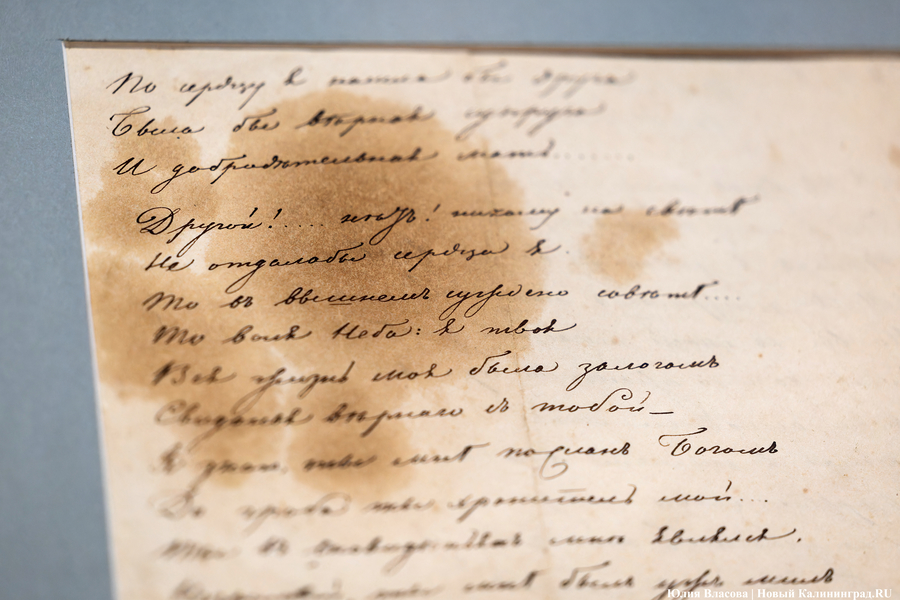 По сердцу я нашла бы друга
Была бы вѣрная супруга
И добродѣтельная мать........
Другой!..... нѣтъ! никому на свѣтѣ
Не отдалабы сердца я.
То въ вышнемъ суждено совѣтѣ....
То воля Неба: я твоя
Вся жизнь моя была залогомъ
Свиданья вѣрнаго съ тобой_
Я знаю, ты мнѣ посланъ Богомъ
До гроба ты хранитель мой...
Ты въ сновидѣньяхъ мнѣ являлся.
ты мнѣ былъ ужъ милъ
Юлия Власова | Новый Калининград.RU